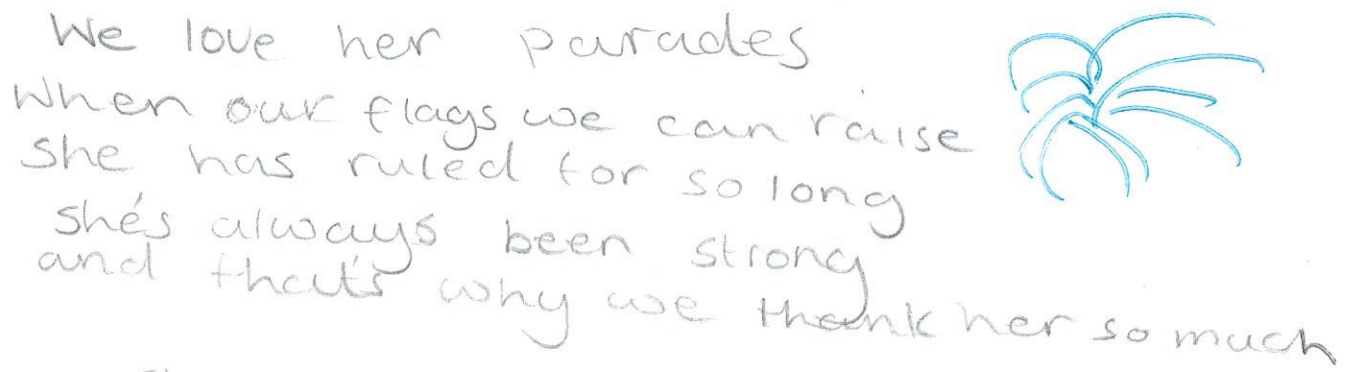 We love her parades
When our flags we can raise
She has ruled for so long
she's always been strong
and that's why we thank her so much